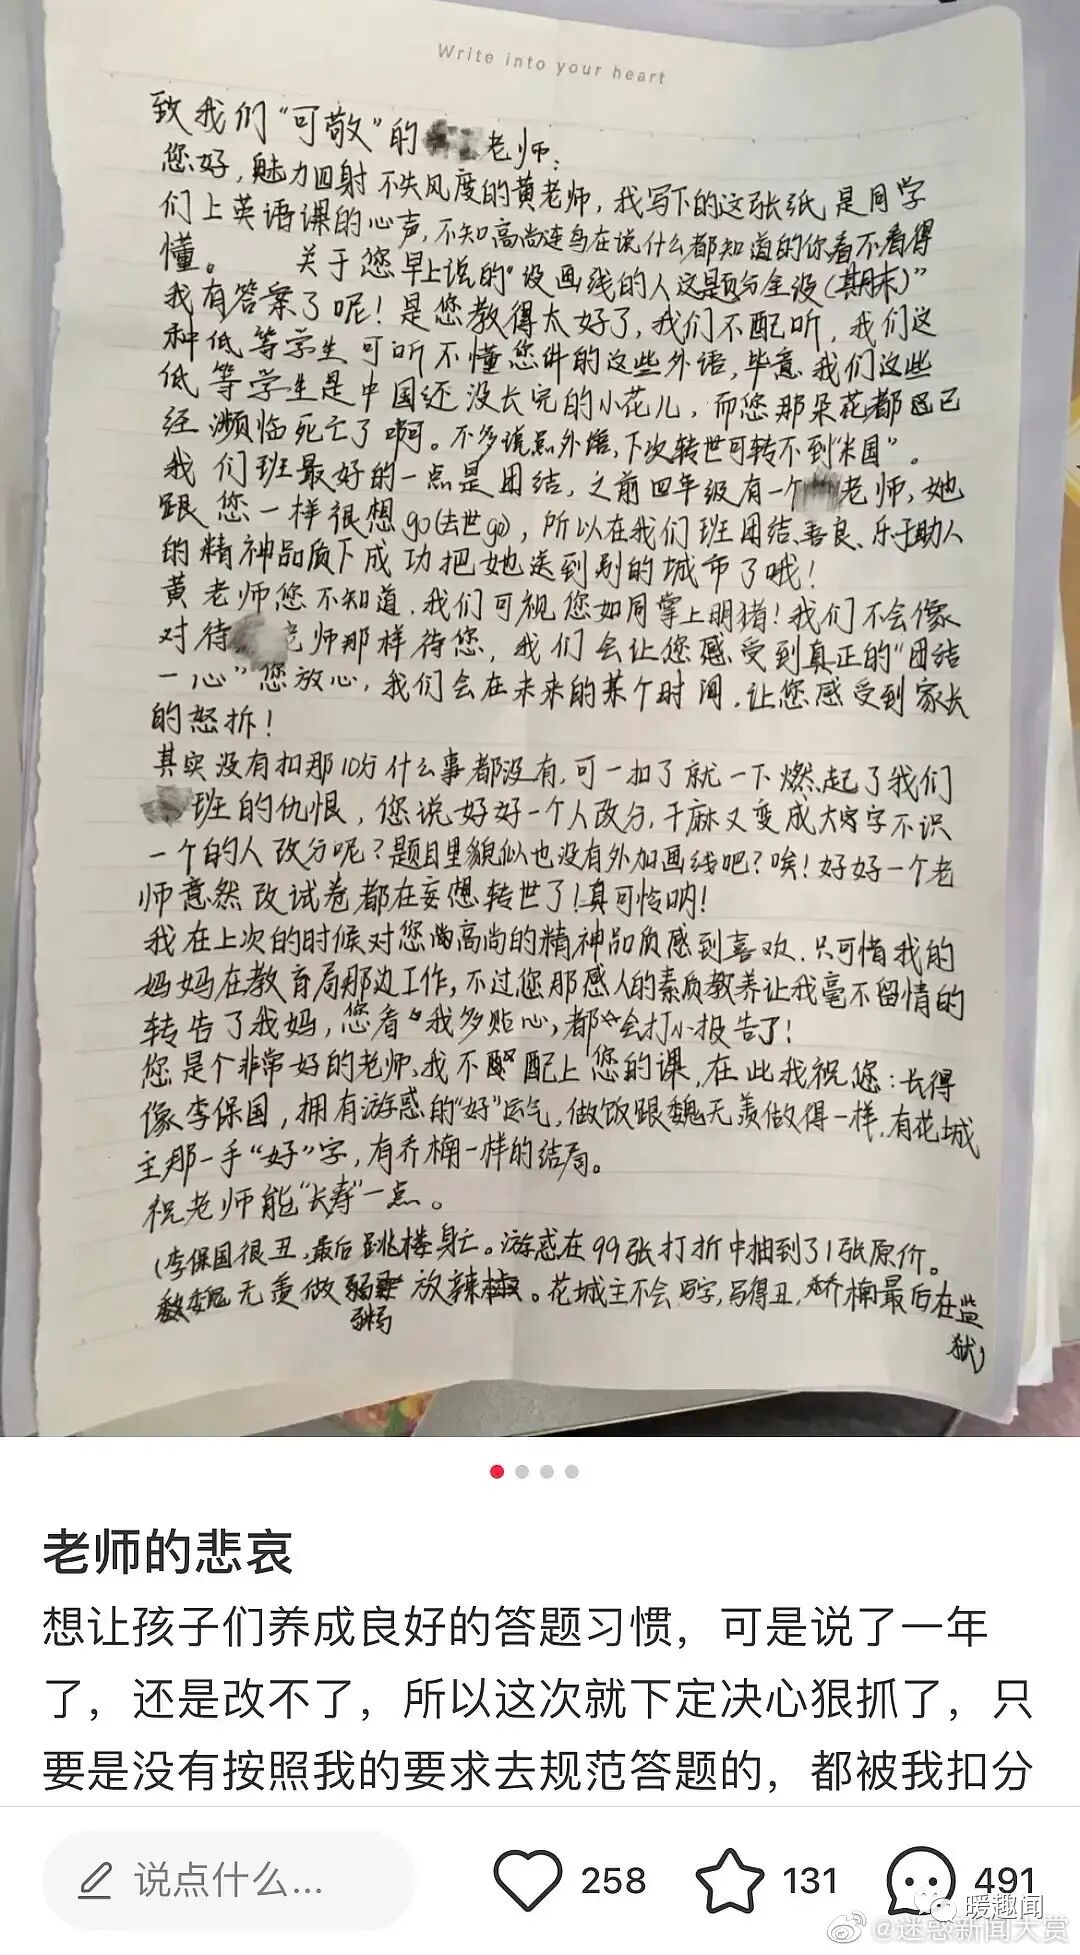 Write into your heart
致我们“可敬”的 老师:
您好,魅力四射不失风度的黄老师,我写下的这张纸是同学
们上英语课的心声,不知高尚连鸟在说什么都知道的你看不看得
懂。 关于您早上说的“没画线的人这题分全没(期末)”
我有答案了呢!是您教得太好了,我们不配听,我们这
种低等学生可听不懂您讲的这些外语,毕意我们这些
低等学生是中国还没长完的小花儿,而您那朵花都已
经濒临死亡了啊。不多说点外语,下次转世可转不到“米国”。
我们班最好的一点是团结,之前四年级有一个 老师,她
跟您一样很想go(去世go),所以在我们班团结、善良、乐于助人
的精神品质下成功把她送到别的城市了哦!
黄老师您不知道,我们可视您如同掌上明猪!我们不会像
对待 老师那样待您,我们会让您感受到真正的“团结
一心”您放心,我们会在未来的某个时间,让您感受到家长
的怒拆!
其实没有扣那10分什么事都没有,可一扣了就一下燃起了我们
班的仇恨,您说好好一个人改分,干麻又变成大字不识
一个的人改分呢?题目里貌似也没有外加画线吧?唉!好好一个老
师意然改试卷都在妄想转世了!真可怜呐!
我在上次的时候对您高尚的精神品质感到喜欢,只可惜我的
妈妈在教育局那边工作,不过您那感人的素质教养让我毫不留情的
转告了我妈,您看我多贴心,都会打小报告了!
您是个非常好的老师,我不配上您的课,在此我祝您:长得
像李保国,拥有游惑的“好”运气,做饭跟魏无羡做得一样,有花城
主那一手“好”字,有乔楠一样的结局。
祝老师能“长寿”一点。
(李保国很丑,最后跳楼身亡。游惑在99张打折中抽到了1张原价。
魏无羡做粥放辣椒。花城主不会写字,写得丑,乔楠最后在监
狱)
老师的悲哀
想让孩子们养成良好的答题习惯,可是说了一年
了,还是改不了,所以这次就下定决心狠抓了,只
要是没有按照我的要求去规范答题的,都被我扣分
说点什么... 258 131 491
暖趣闻
@迷惑新闻大赏